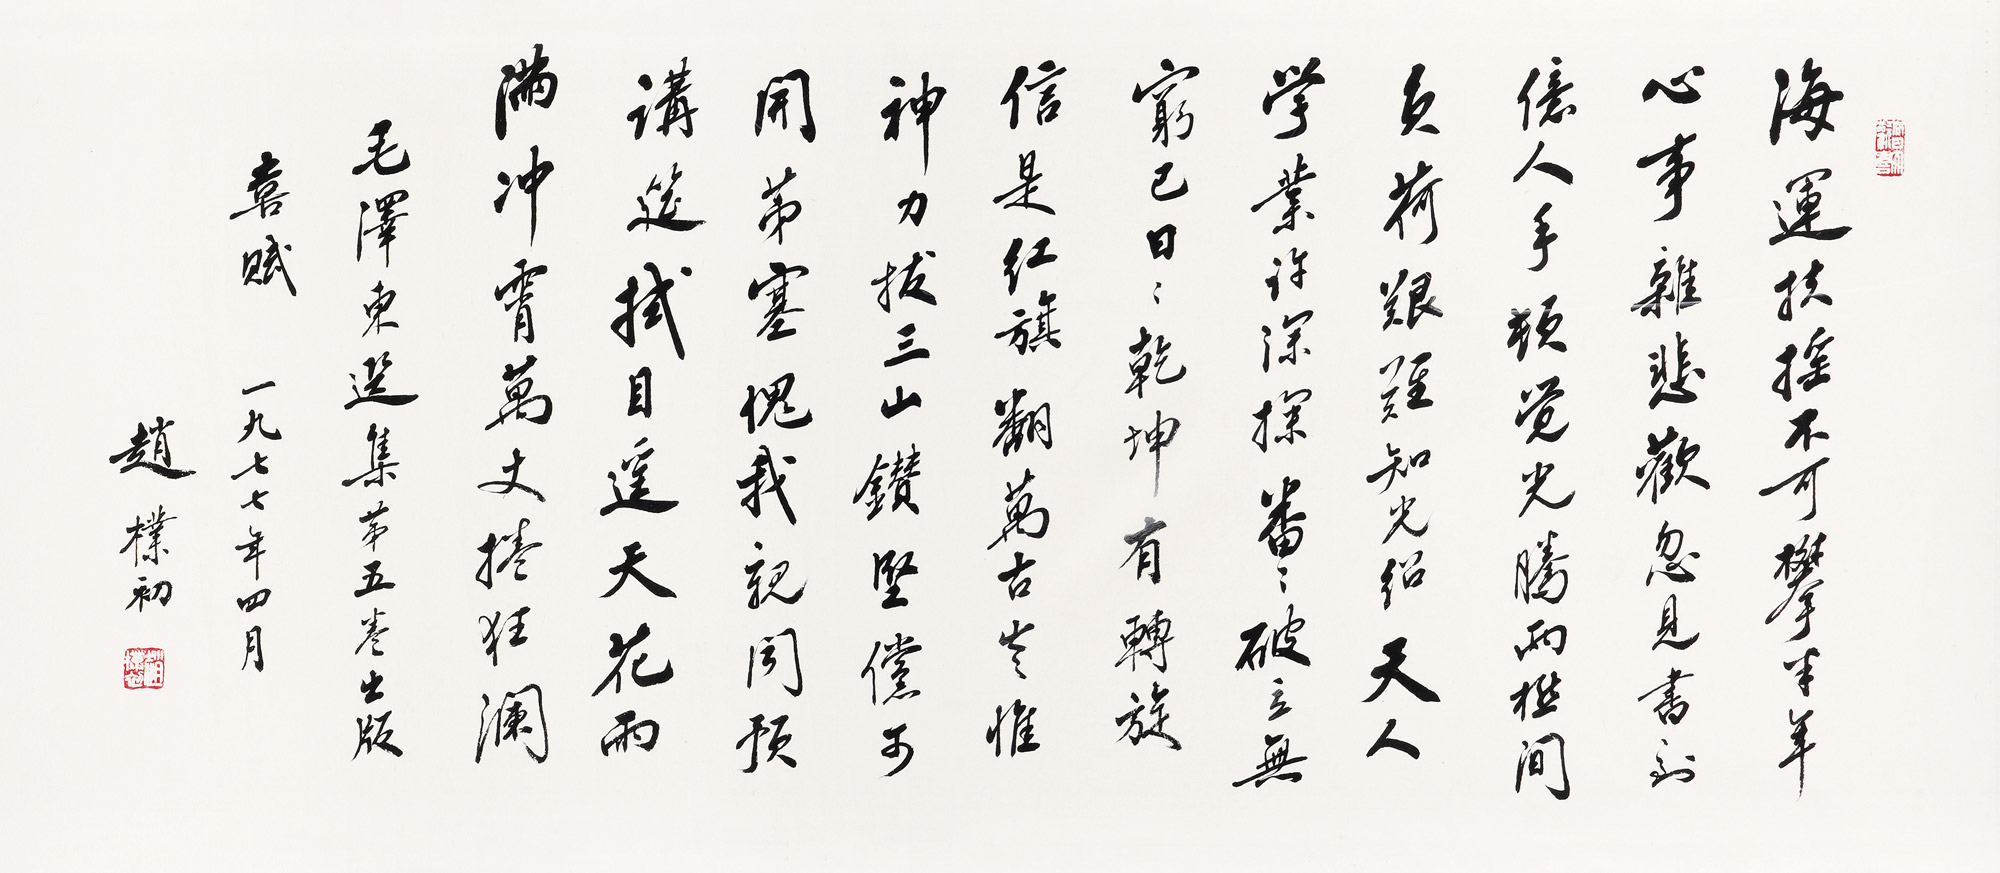 海運扶搖不可攀半年
心事雜悲歡忽見書到
億人手頓觉光騰兩極間
負荷艱難知光紹天人
學業許深探番〻破立無
窮已日〻乾坤有轉旋
信是红旗翻萬古言惟
神力拔三山鑽堅儻可
開茅塞愧我親聞預
講筵拭目遥天花雨
滿冲霄萬丈捲狂瀾
毛澤東選集第五卷出版
喜賦 一九七七年四月
趙樸初